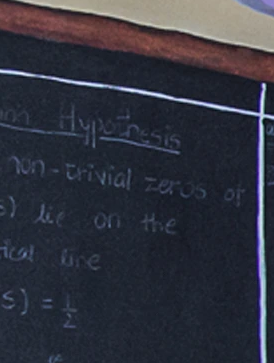 Hypothesis
non-trivial zeros of
s) lie on the
line
s) = 1/2